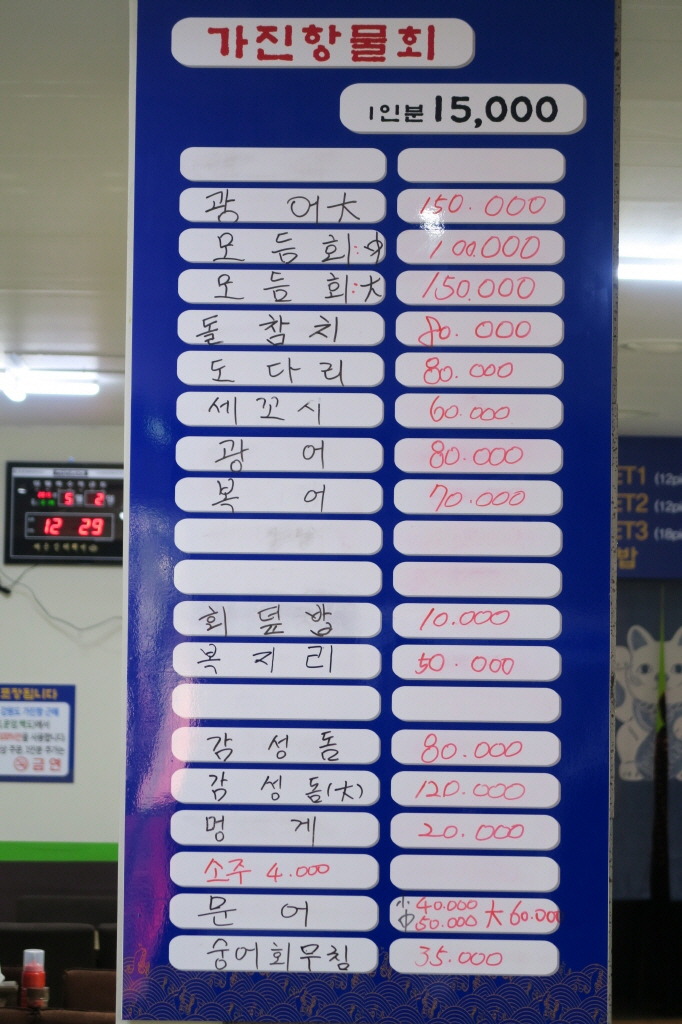 가진항물회
1인분 15,000
광 어大 150.000
모 듬 회:中 100.000
모 듬 회:大 150.000
돌 참 치 80.000
도 다 리 80.000
세 꼬 시 60.000
광 어 80.000
복 어 70.000
회 덮 밥 10.000
복 지 리 50.000
감 성 돔 80.000
감 성 돔(大) 120.000
멍 게 20.000
소주 4.000
문 어 小 40.000 中 50.000 大 60.000
숭어회무침 35.000
5 2
12 29
금연
ET1 (12p
ET2 (12p
ET3 (18p
밥